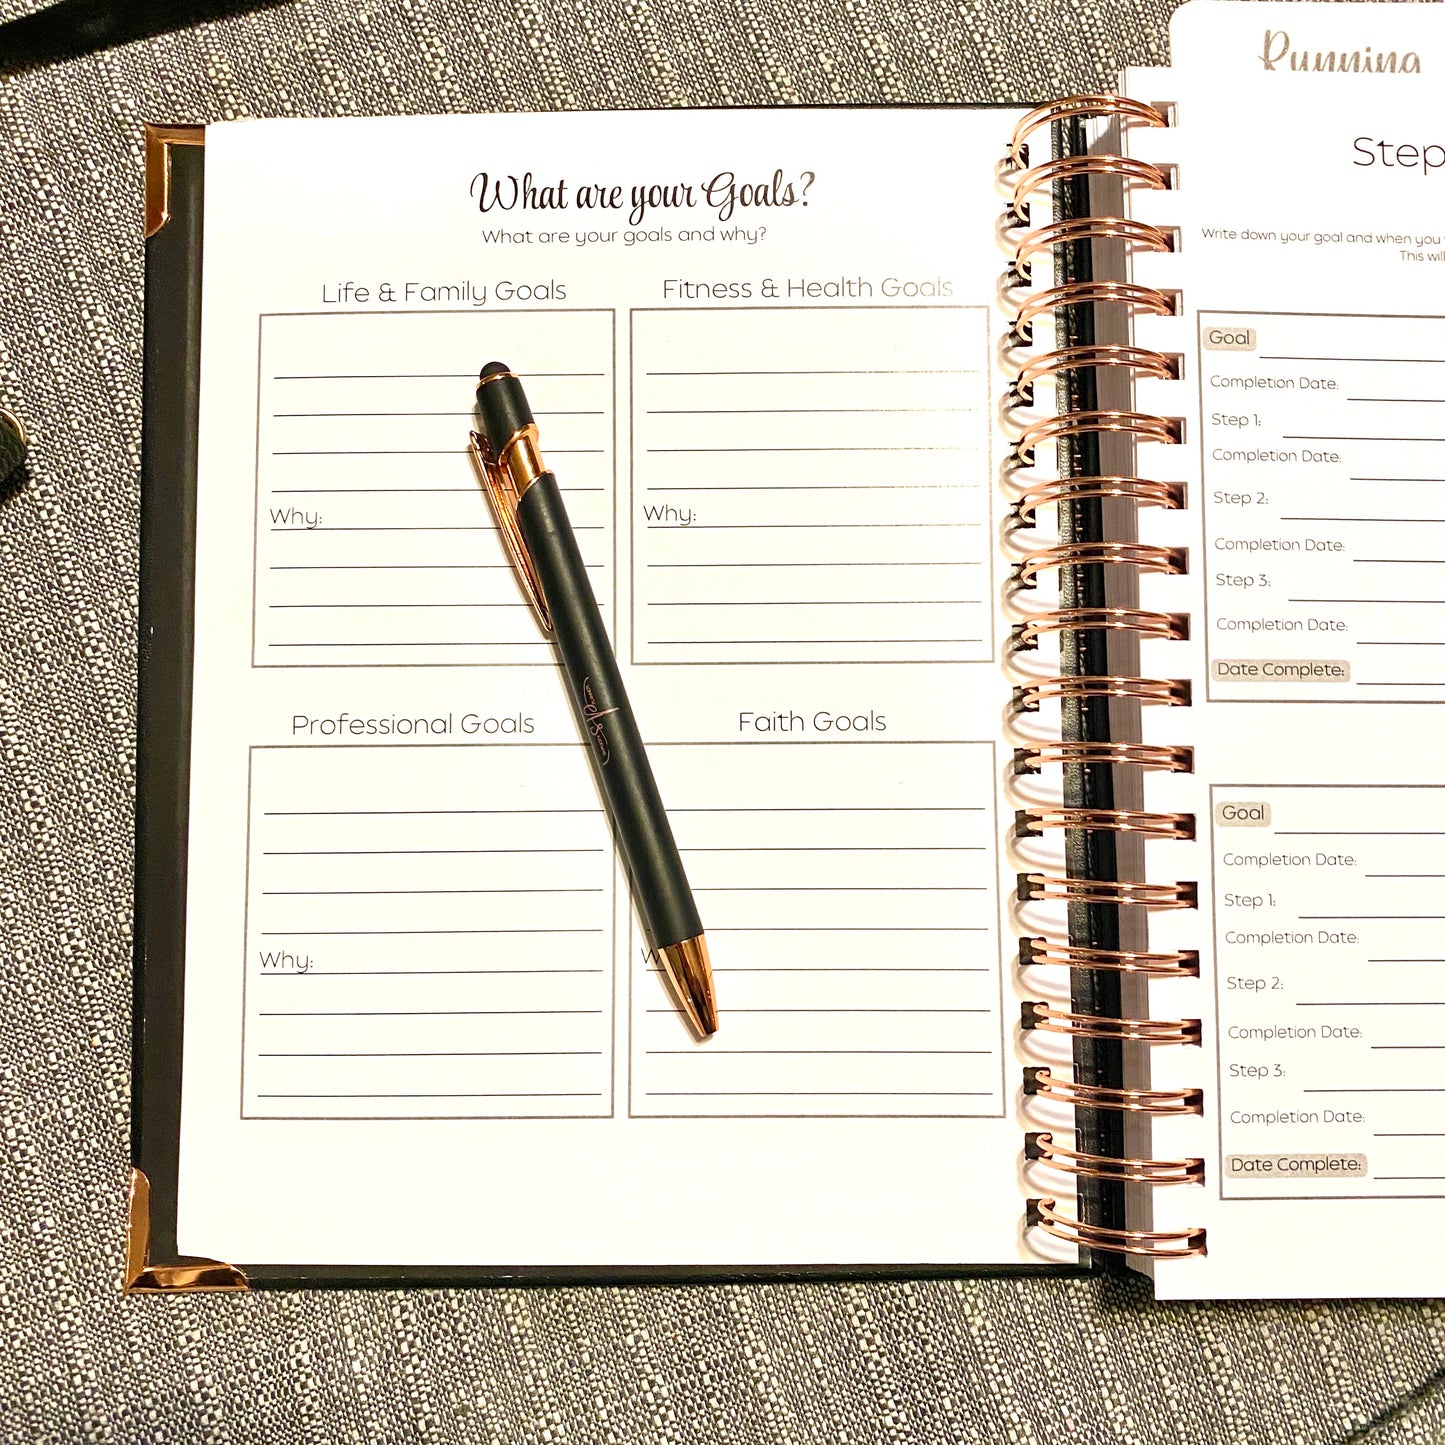 What are your Goals?
What are your goals and why?
Life & Family Goals
Fitness & Health Goals
Why:
Why:
Professional Goals
Faith Goals
Why:
Running
Step
Write down your goal and when you
This will
Goal
Completion Date:
Step 1:
Completion Date:
Step 2:
Completion Date:
Step 3:
Completion Date:
Date Complete:
Goal
Completion Date:
Step 1:
Completion Date:
Step 2:
Completion Date:
Step 3:
Completion Date:
Date Complete: